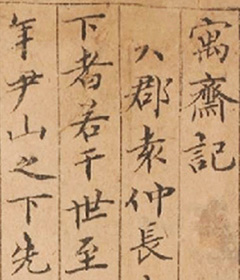 寓齋記
八郡袁仲長
下者若干世至
年尹山之下先